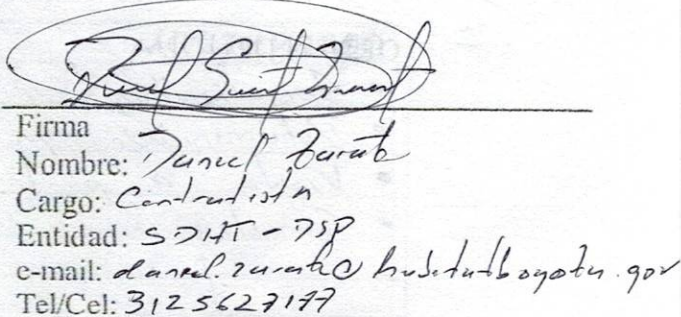 Firma
Nombre: Daniel Zarate
Cargo: Contratista
Entidad: SDHT - DSP
e-mail: daniel.zarate@habitatbogota.gov
Tel/Cel: 3125627177